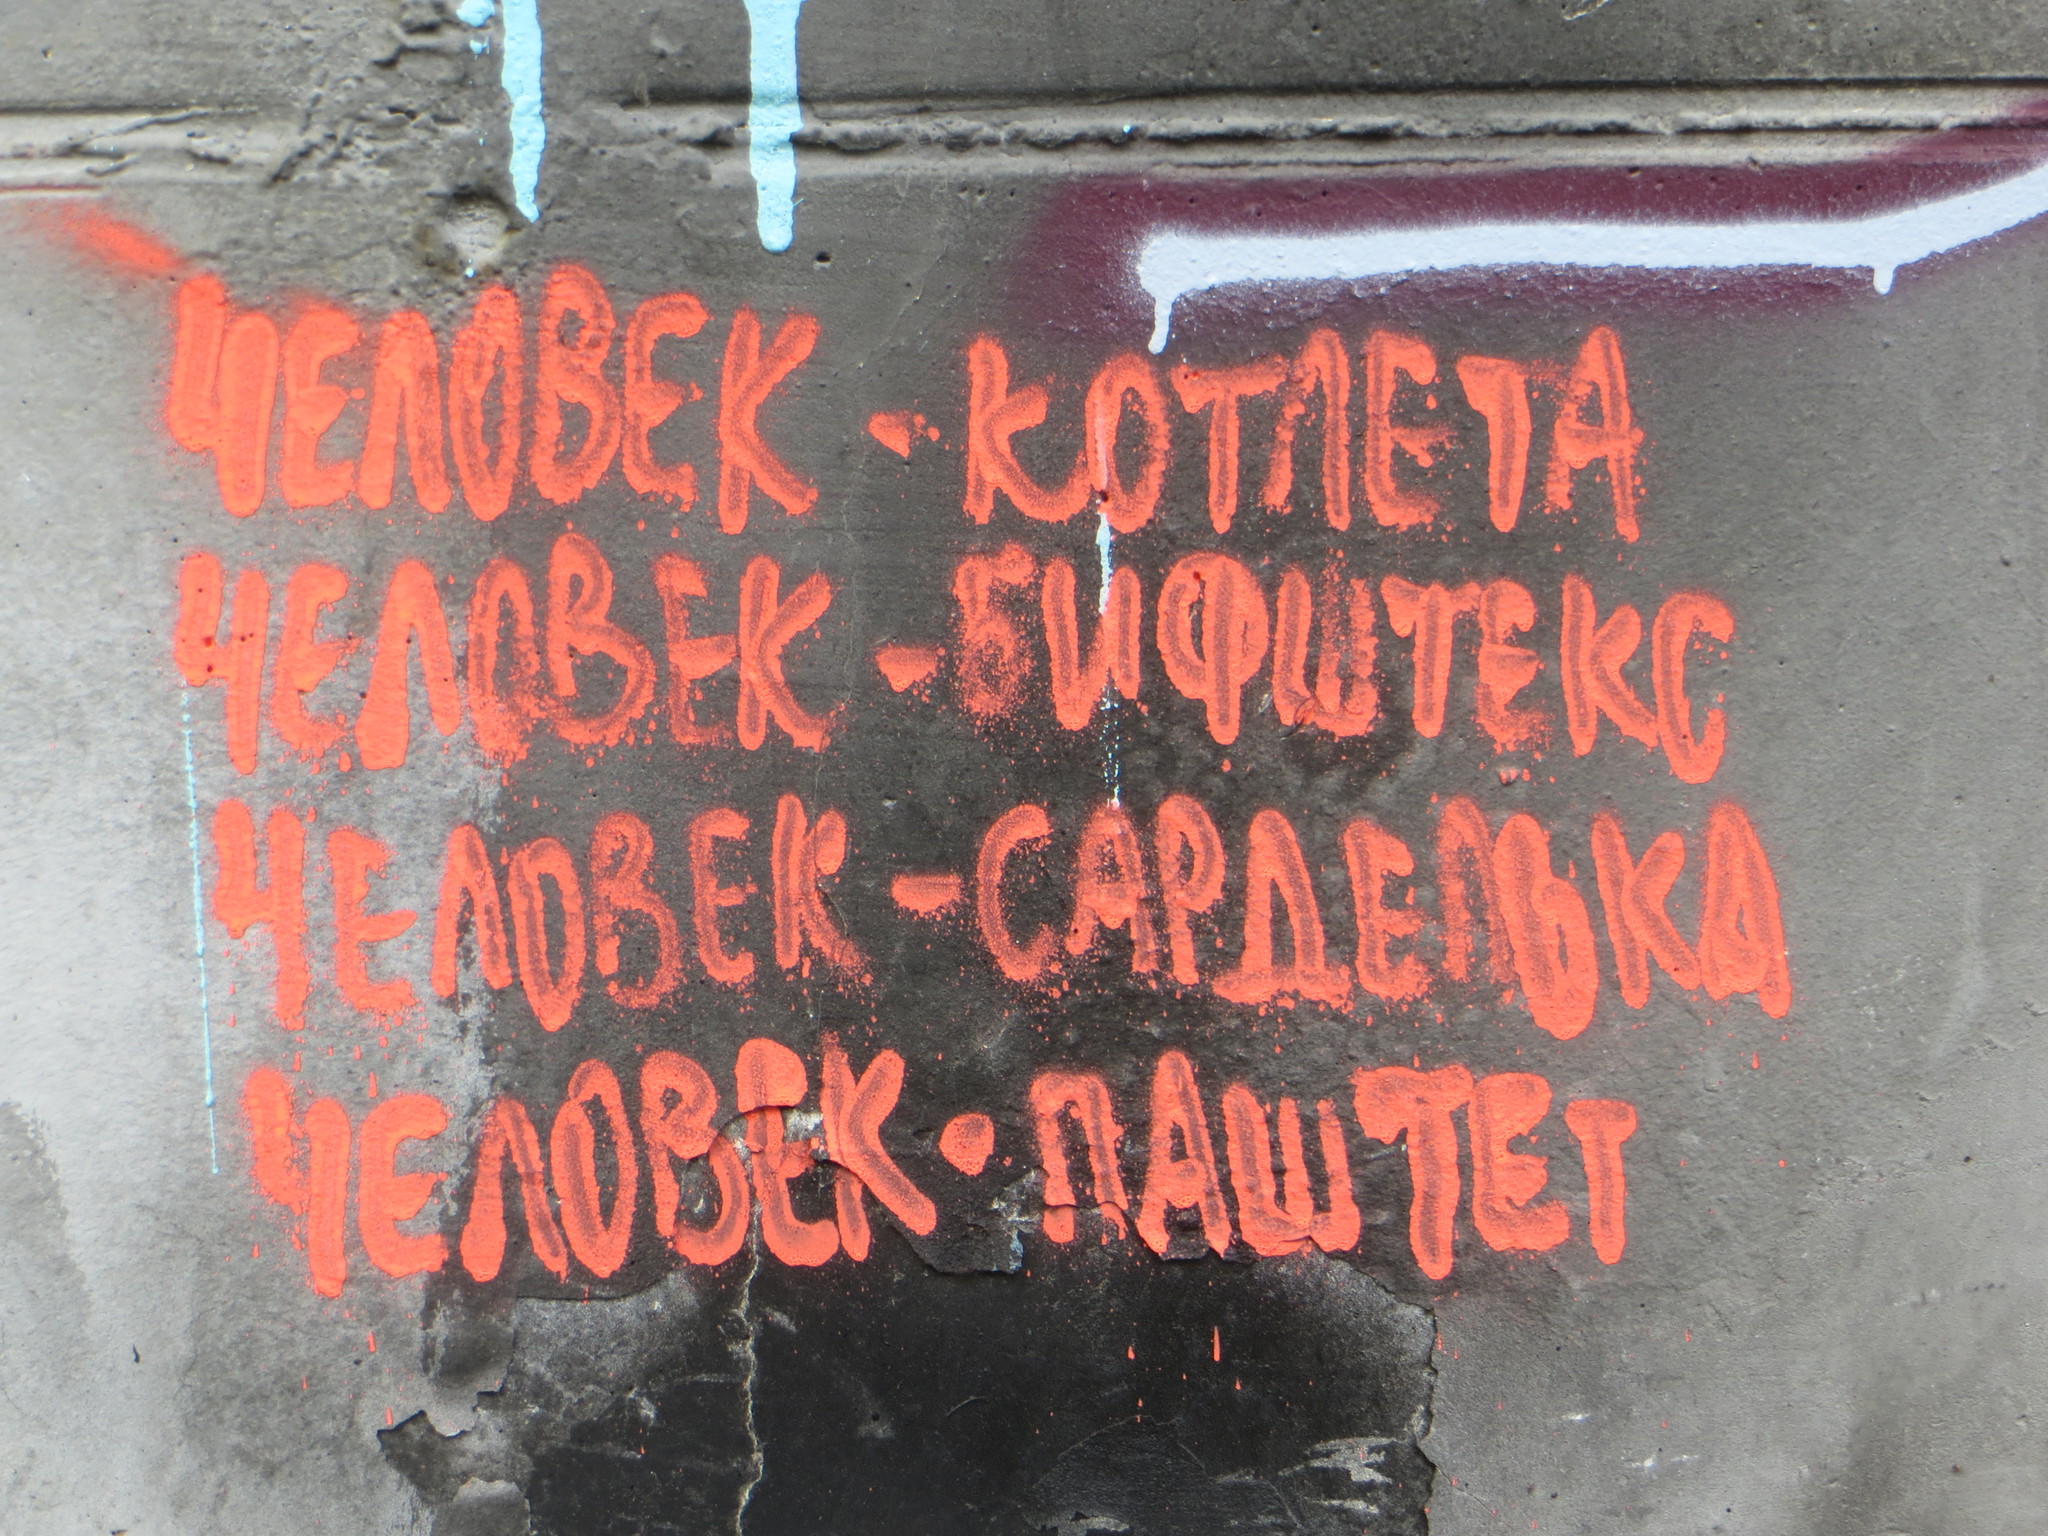 ЧЕЛОВЕК - КОТЛЕТА
ЧЕЛОВЕК - БИФШТЕКС
ЧЕЛОВЕК - САРДЕЛЬКА
ЧЕЛОВЕК - ПАШТЕТ